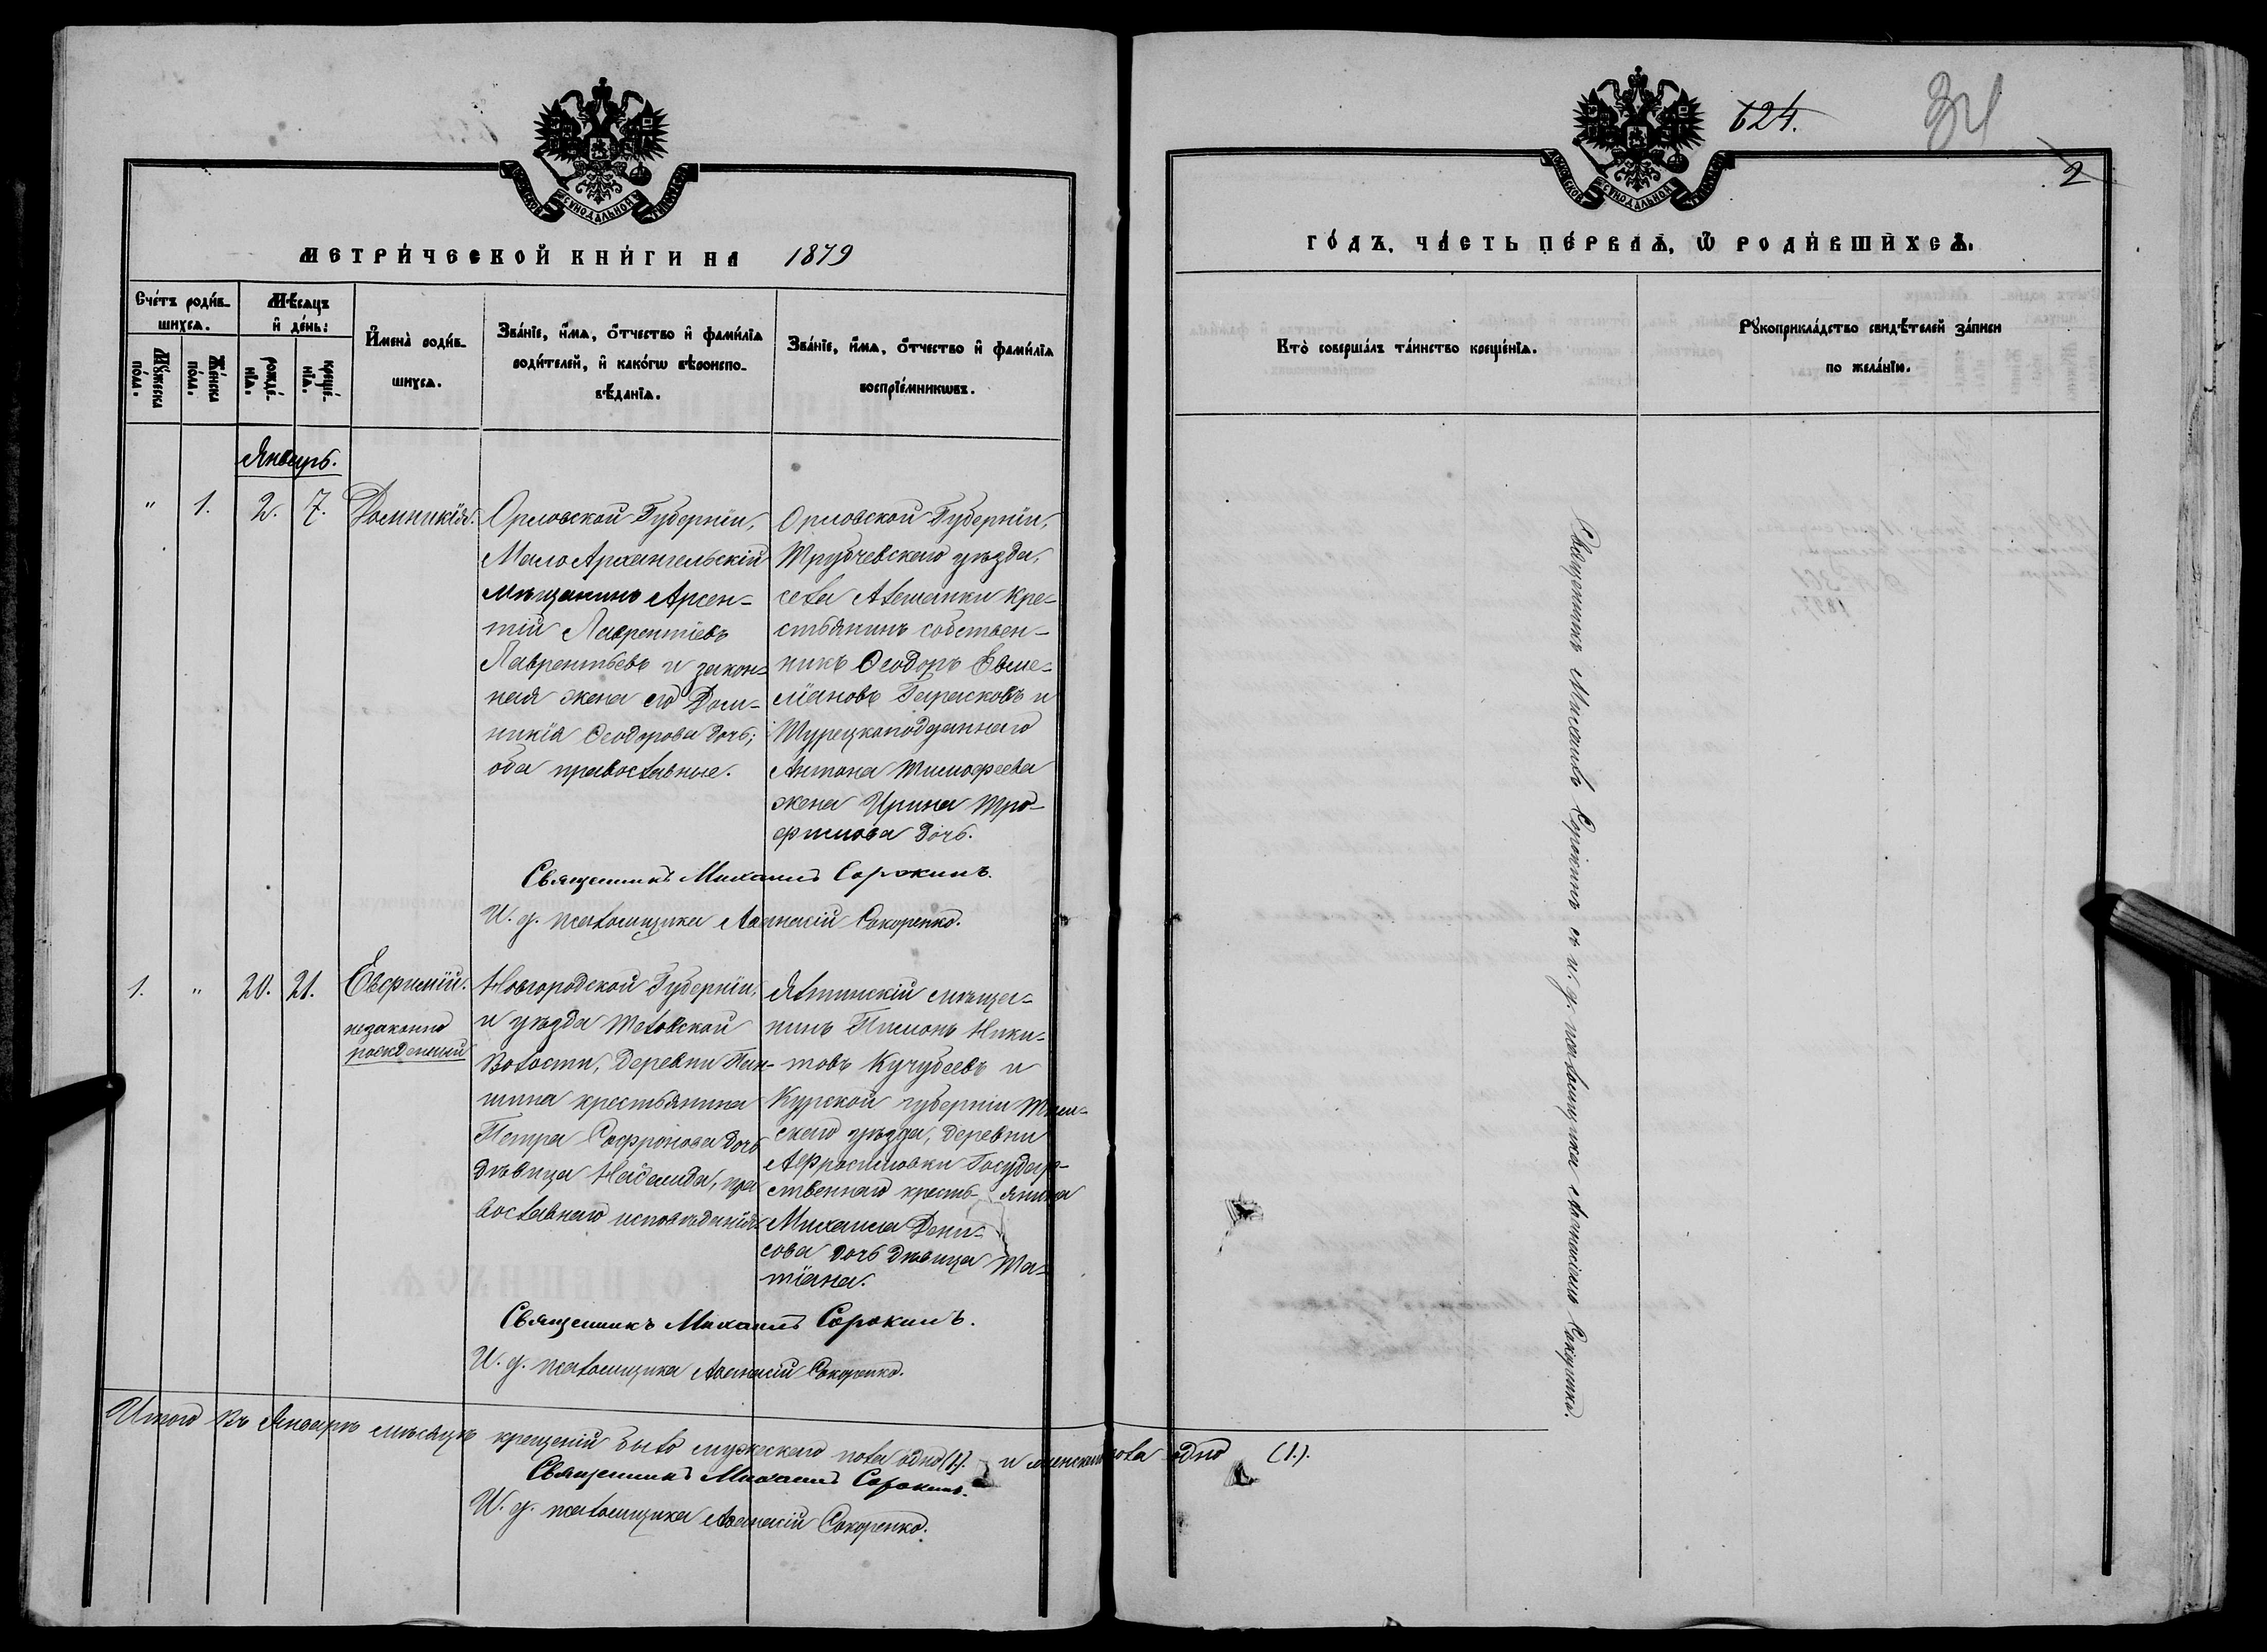 МОСКОВСКОЙ СѴНОДАЛЬНОЙ ТИПОГРАФІИ
МЕТРИ́ЧЕСКОЙ КНИ́ГИ НА 1879
Сче́тъ роди́в-
шихсѧ.
Мѣ́сяцъ
и҆ де́нь:
Мꙋ́жеска
по́ла.
Же́нска
по́ла.
рожде́-
нїѧ.
креще́-
нїѧ.
И҆мена̀ роди́в-
шихсѧ.
Зва́нїе, и҆́мѧ, ѻ҆́тчество и҆ фами́лїѧ
роди́телей, и҆ како́гѡ вѣроиспо-
вѣ́данїѧ.
Зва́нїе, и҆́мѧ, ѻ҆́тчество и҆ фами́лїѧ
воспрїе́мникѡвъ.
Январь.
" 1. 2. 7. Домникія.
Орловской Губерніи,
МалоАрхангельскій
мѣщанинъ Арсен-
тій Лаврентіевъ
Лаврентьевъ и закон-
ная жена его Дом-
никія Ѳеодорова дочь;
оба православные.
Орловской Губерніи,
Трубчевскаго уѣзда,
села Алешанки кре-
стьянинъ собствен-
никъ Ѳеодоръ Евме-
ніановъ и
Турецкоподданнаго
Антона Тимофеева
жена Ирина Тро-
фимова дочь.
Священникъ Михаилъ Сорокинъ.
И. д. псаломщика Аѳанасій Сокоренко.
1. " 20. 21. Евфимій.
незаконно
рожденный
Новгородской Губерніи,
и уѣзда
Волости, деревни
крестьянина
Петра Софронова дочь
дѣвица Надежда, пра
вославнаго исповѣданія.
Ялтинскій мѣща-
нинъ Пимонъ Ники-
товъ Кучубеевъ и
Курской губерніи Тим-
скаго уѣзда, деревни
Афросимовки Государ-
ственнаго кресть-янина
Михаила Дени-
сова дочь дѣвица Та-
тіана.
Священникъ Михаилъ Сорокинъ.
И. д. псаломщика Аѳанасій Сокоренко.
Итого въ Январѣ мѣсяцѣ крещеній было мужескаго пола одно (1). и женскаго пола одно (1.).
Священникъ Михаилъ Сорокинъ.
И. д. псаломщика Аѳанасій Сокоренко.
624.
34
2
МОСКОВСКОЙ СѴНОДАЛЬНОЙ ТИПОГРАФІИ
ГО́ДЪ, ЧА́СТЬ ПЕ́РВАѦ, Ѽ РОДИ́ВШИХСѦ.
Кто̀ соверша́лъ та́инство креще́нїѧ.
Рꙋкоприкла́дство свидѣ́телей за́писи
по жела́нїю.
Священникъ Михаилъ Сорокинъ съ и. д. псаломщика Аѳанасіемъ Сокоренко.